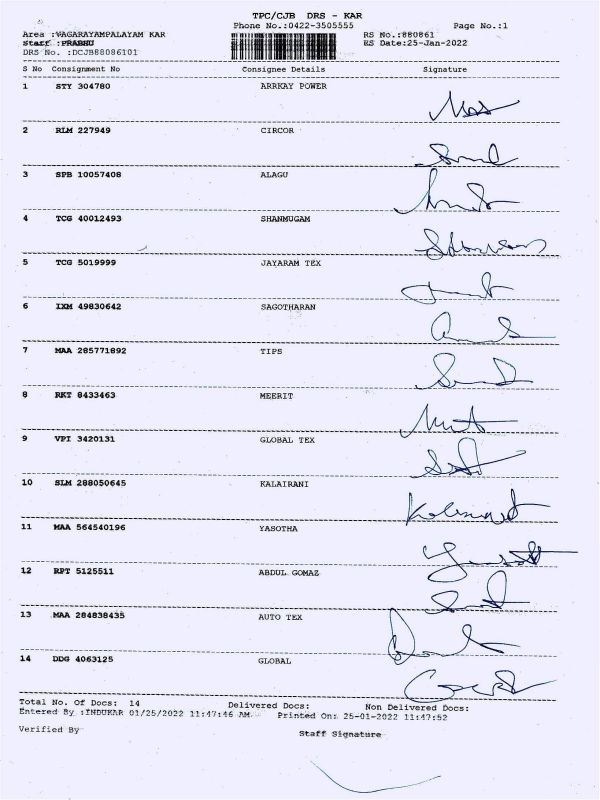 TPC/CJB DRS - KAR
Phone No.:0422-3505555 Page No.:1
Area :VAGARAYAMPALAYAM KAR RS No.:880861
Staff :PRABHU RS Date:25-Jan-2022
DRS No. :DCJB88086101
S No Consignment No Consignee Details Signature
1 STY 304780 ARRKAY POWER
2 RLM 227949 CIRCOR
3 SPB 10057408 ALAGU
4 TCG 40012493 SHANMUGAM
5 TCG 5019999 JAYARAM TEX
6 IXM 49830642 SAGOTHARAN
7 MAA 285771892 TIPS
8 RKT 8433463 MEERIT
9 VPI 3420131 GLOBAL TEX
10 SLM 288050645 KALAIRANI
11 MAA 564540196 YASOTHA
12 RPT 5125511 ABDUL GOMAZ
13 MAA 284838435 AUTO TEX
14 DDG 4063125 GLOBAL
Total No. Of Docs: 14 Delivered Docs: Non Delivered Docs:
Entered By :INDUKAR 01/25/2022 11:47:46 AM. Printed On: 25-01-2022 11:47:52
Verified By Staff Signature